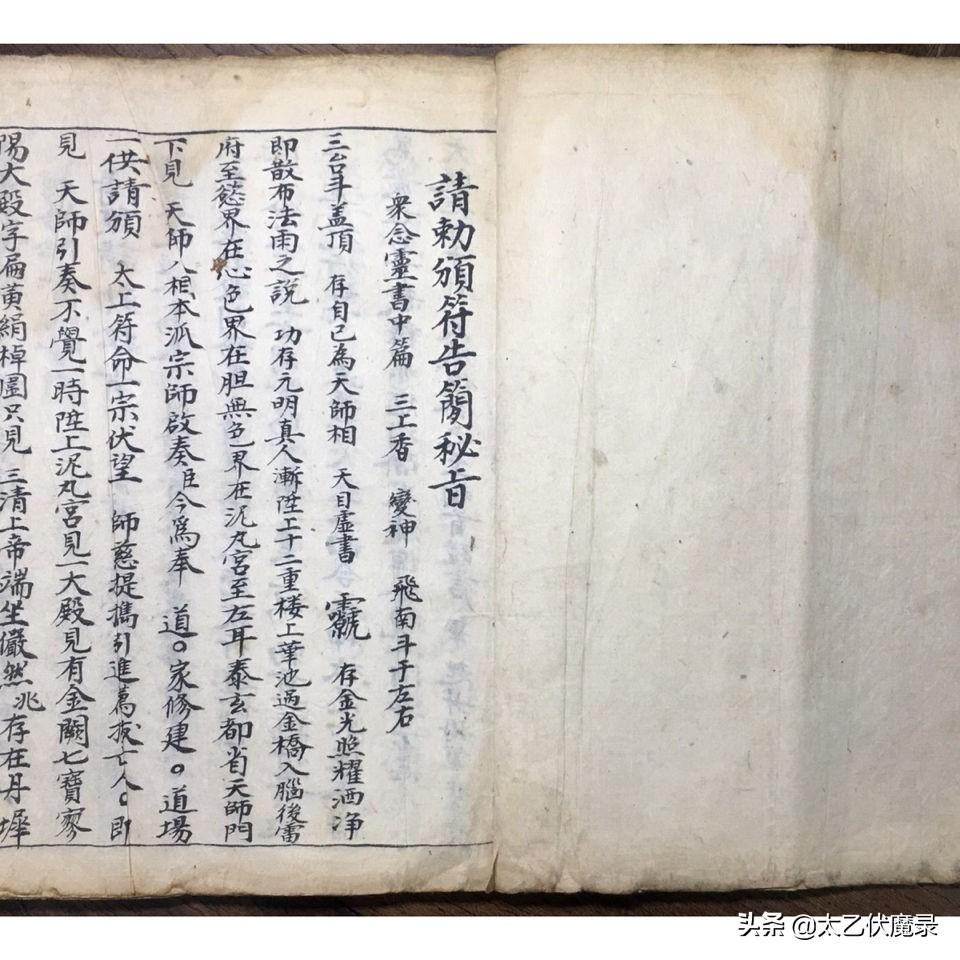 請勅頒符告簡秘旨
衆念靈書中篇 三上香 變神 飛南斗于左右
三台斗盖頂 存自己為天師相 天目虛書 存金光照耀洒净
即散布法雨之説 功存元明真人漸陞上十二重楼上華池過金橋入腦後雷
府至慾界在心色界在胆無色界在泥丸宮至左耳泰玄都省天師門
下見 天師八相本派宗師啟奏臣今爲奉 道〇家修建〇道場
一供請頒 太上符命一宗伏望 師慈提攜引進萬拔亡人〇即
見 天師引奏不覺一時陞上泥丸宮見一大殿見有金闕七寶寥
陽大殿字扁黃絹棹圍只見 三清上帝端坐儼然兆存在丹墀
头条 @太乙伏魔录